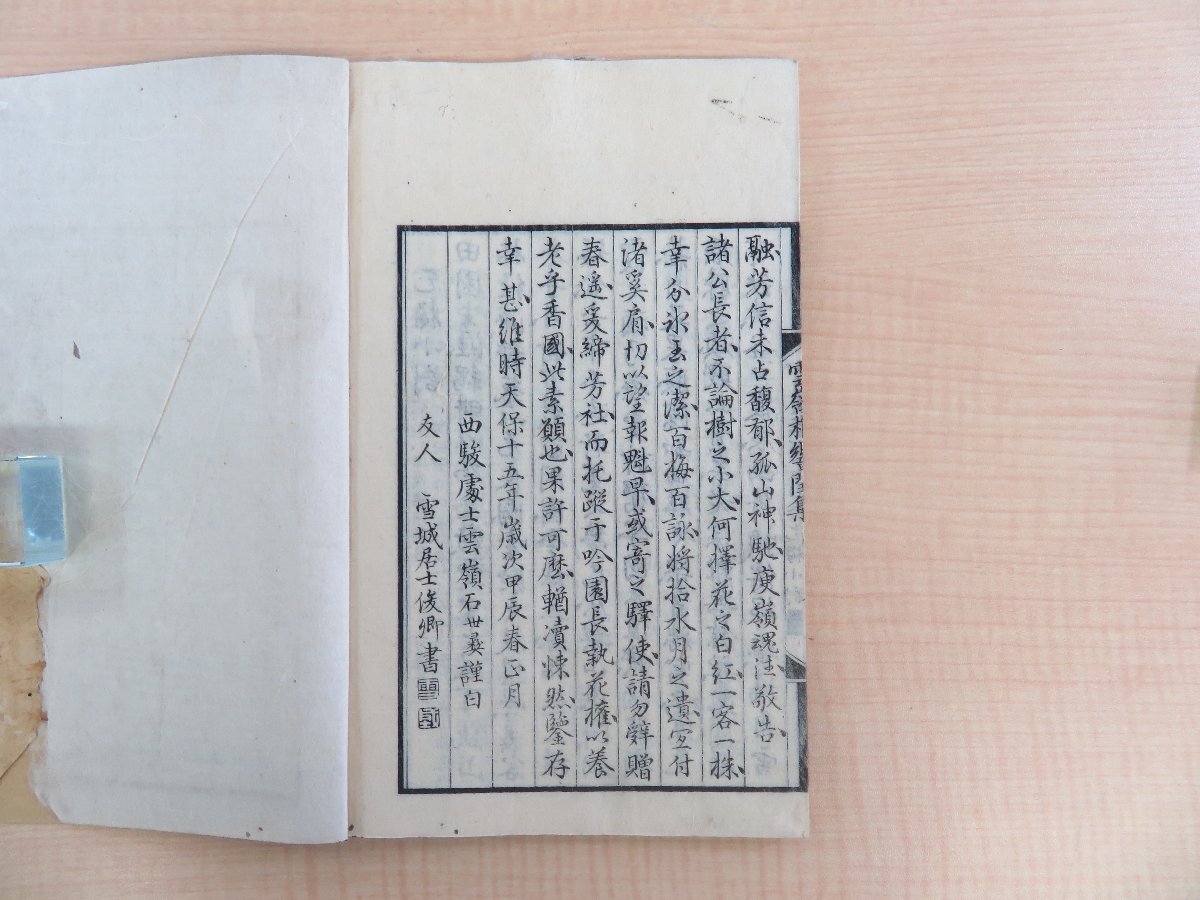 融芳信未占馥郁孤山神馳庾嶺魂注敬告
諸公長者不論樹之小大何擇花之白紅一客一株
幸分氷玉之潔百梅百詠將拾水月之遺宜付
渚奚肩切以望報魁早或寄之驛使請勿辞贈
春遥爰締芳社而托蹤于吟園長執花權以養
老乎香國此素願也果許可麽輶瀆悚然鑒存
幸甚維時天保十五年歳次甲辰春正月
西駿處士雲嶺石世彜謹白
友人 雪城居士俊卿書